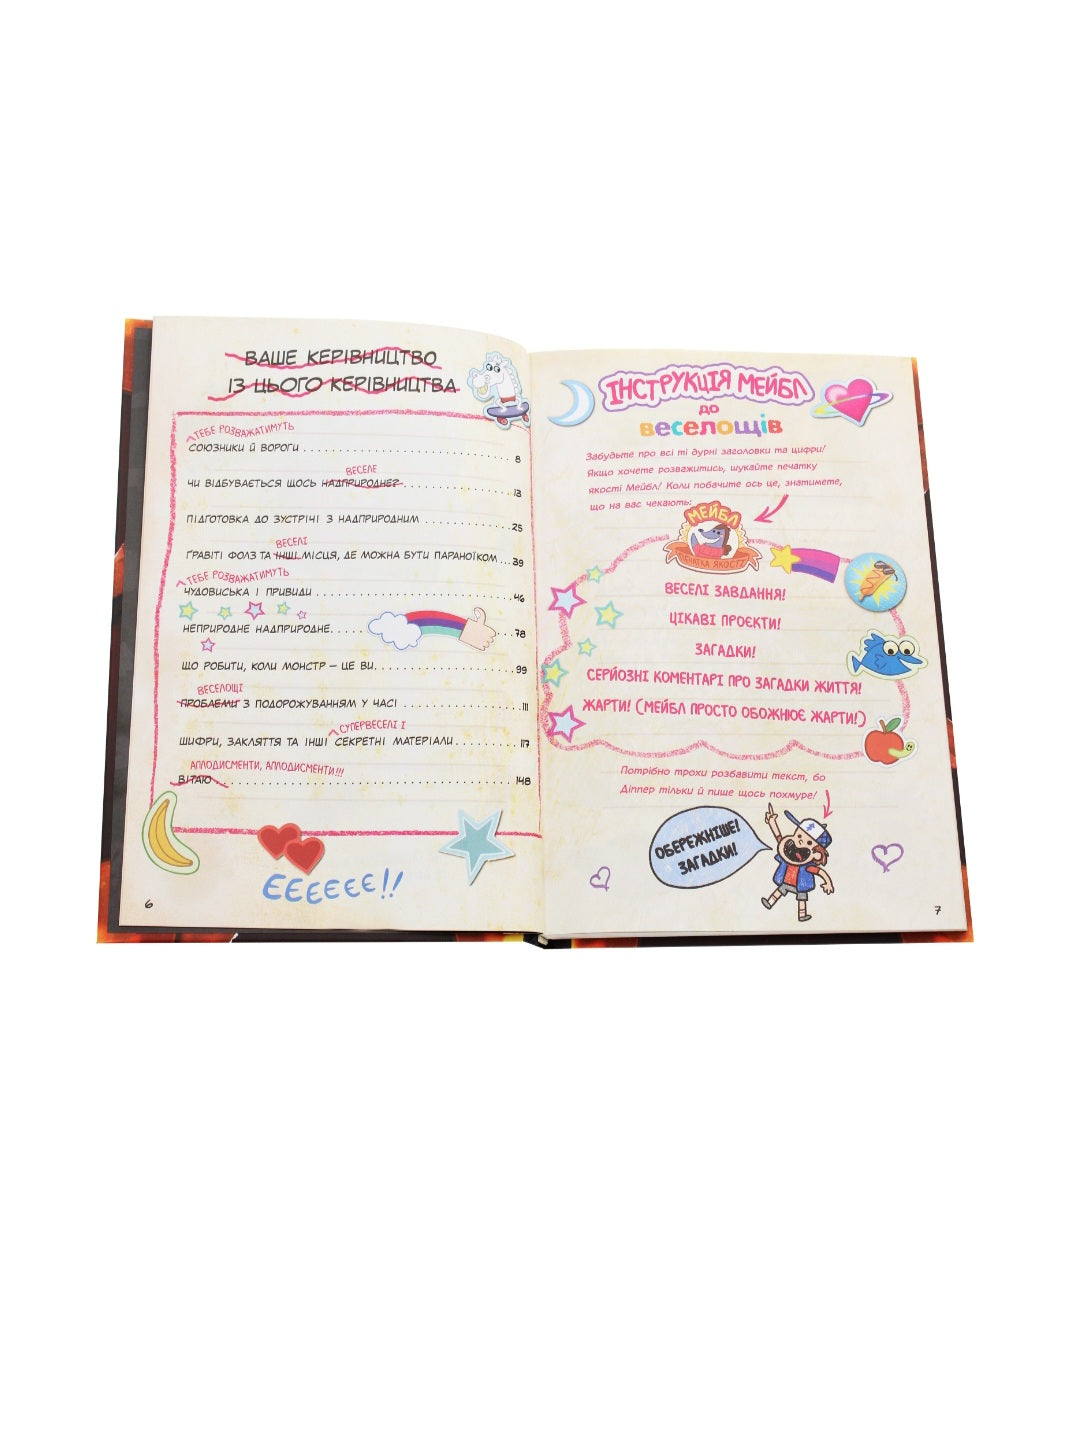 ВАШЕ КЕРІВНИЦТВО
ІЗ ЦЬОГО КЕРІВНИЦТВА
ТЕБЕ РОЗВАЖАТИМУТЬ
СОЮЗНИКИ Й ВОРОГИ 8
ВЕСЕЛЕ
ЧИ ВІДБУВАЄТЬСЯ ЩОСЬ НАДПРИРОДНЕ? 13
ПІДГОТОВКА ДО ЗУСТРІЧІ З НАДПРИРОДНИМ 25
ВЕСЕЛІ
ҐРАВІТІ ФОЛЗ ТА ІНШІ МІСЦЯ, ДЕ МОЖНА БУТИ ПАРАНОЇКОМ 39
ТЕБЕ РОЗВАЖАТИМУТЬ
ЧУДОВИСЬКА І ПРИВИДИ 46
НЕПРИРОДНЕ НАДПРИРОДНЕ 78
ЩО РОБИТИ, КОЛИ МОНСТР – ЦЕ ВИ 99
ВЕСЕЛОЩІ
ПРОБЛЕМИ З ПОДОРОЖУВАННЯМ У ЧАСІ 111
СУПЕРВЕСЕЛІ І
ШИФРИ, ЗАКЛЯТТЯ ТА ІНШІ СЕКРЕТНІ МАТЕРІАЛИ 117
АПЛОДИСМЕНТИ, АПЛОДИСМЕНТИ!!!
ВІТАЮ 148
ЕЕЕЕЕЕ!!
6
ІНСТРУКЦІЯ МЕЙБЛ
ДО
ВЕСЕЛОЩІВ
Забудьте про всі ті дурні заголовки та цифри!
Якщо хочете розважитись, шукайте печатку
якості Мейбл! Коли побачите ось це, знатимете,
що на вас чекають:
МЕЙБЛ
ПЕЧАТКА ЯКОСТІ
ВЕСЕЛІ ЗАВДАННЯ!
ЦІКАВІ ПРОЄКТИ!
ЗАГАДКИ!
СЕРЙОЗНІ КОМЕНТАРІ ПРО ЗАГАДКИ ЖИТТЯ!
ЖАРТИ! (МЕЙБЛ ПРОСТО ОБОЖНЮЄ ЖАРТИ!)
Потрібно трохи розбавити текст, бо
Діппер тільки й пише щось похмуре!
ОБЕРЕЖНІШЕ!
ЗАГАДКИ!
7